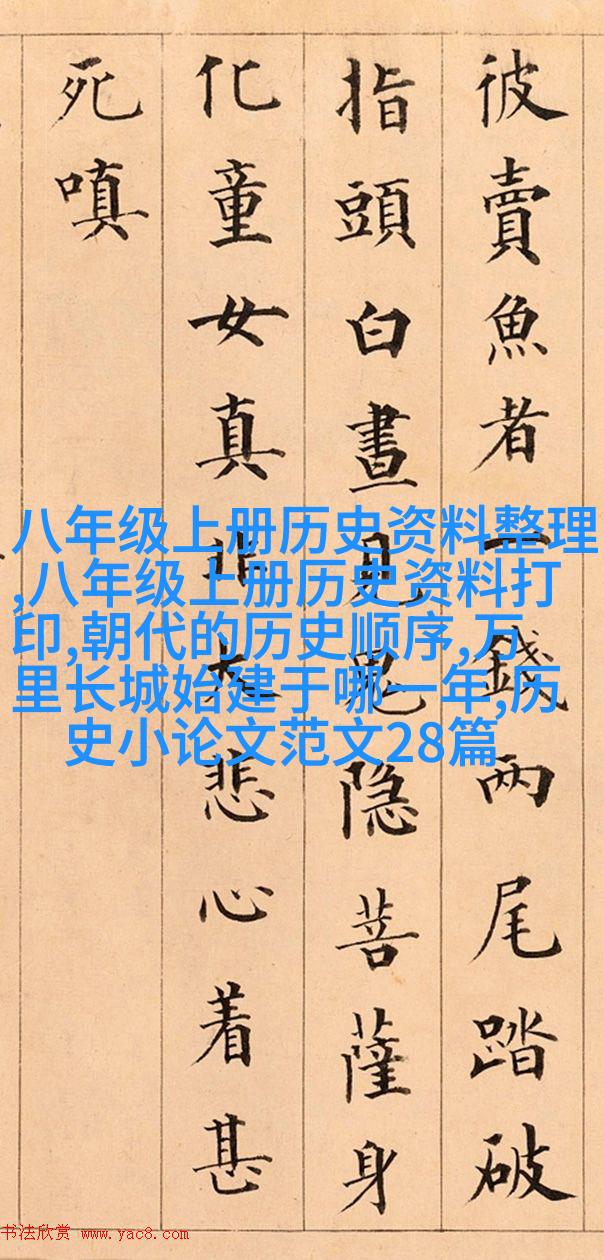 彼賣魚者一錢兩尾踏破
指頭白晝見鬼隐菩薩身
化童女真大悲心着甚
死嗔
八年级上册历史资料整理
,八年级上册历史资料打
印,朝代的历史顺序,万
里长城始建于哪一年,历
史小论文范文28篇
书法欣赏 www.yac8.com